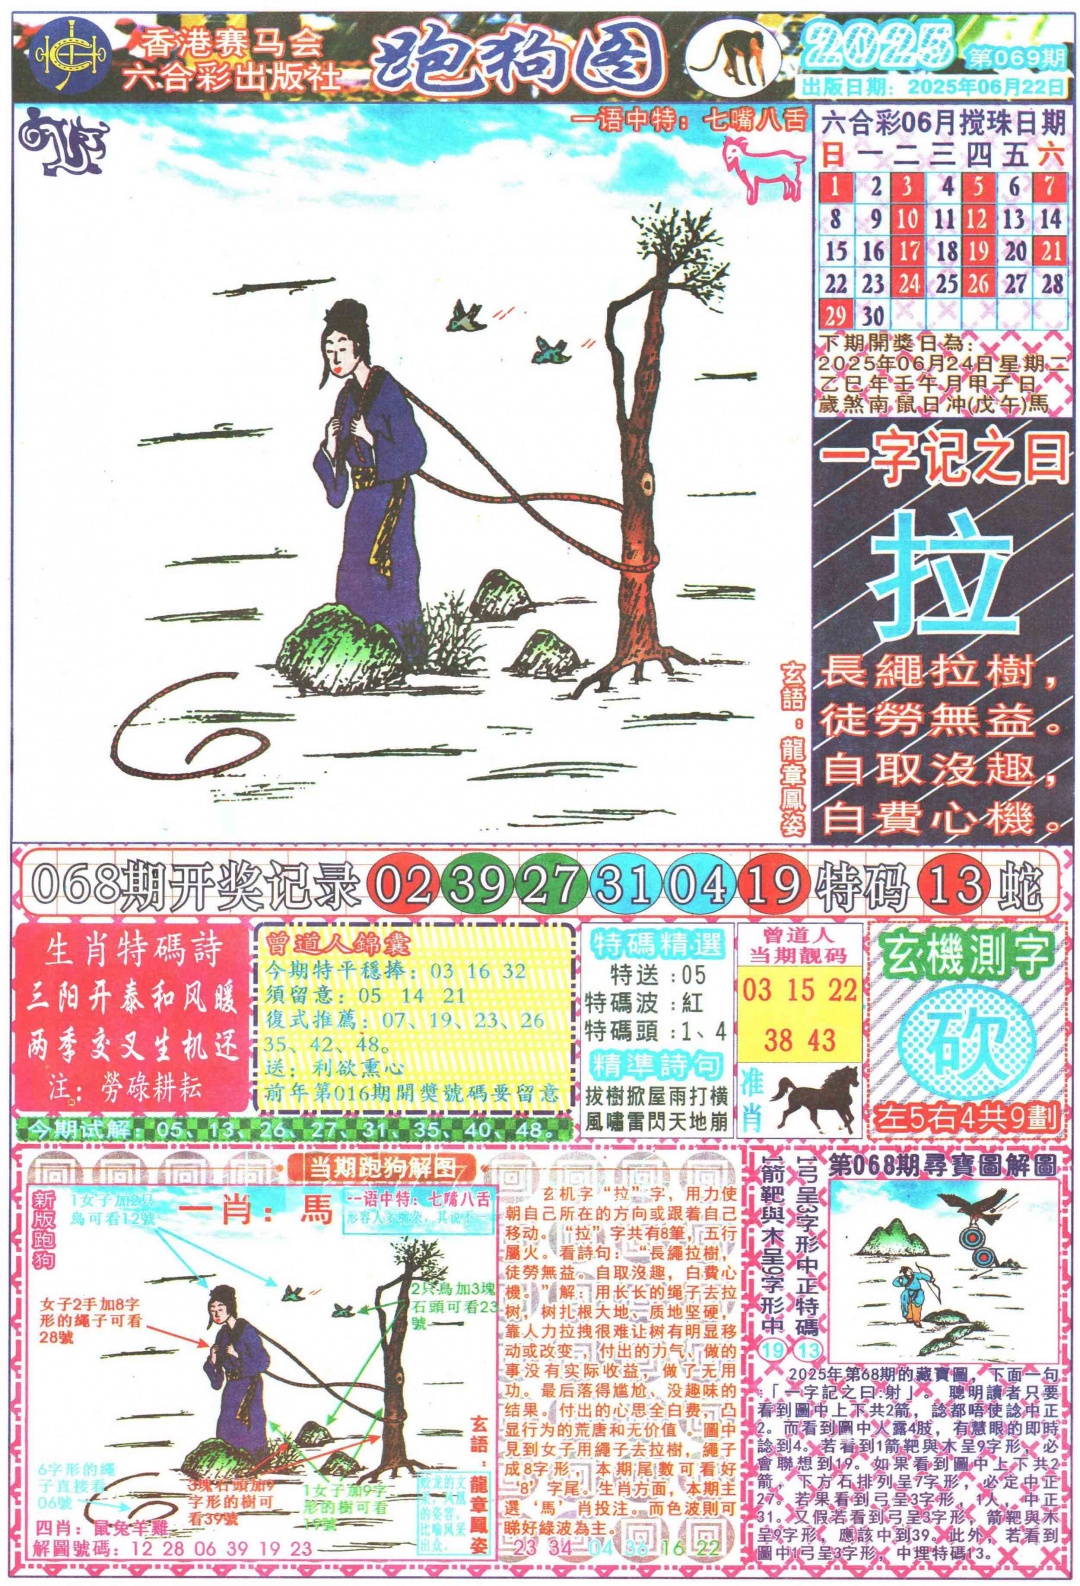 香港赛马会
六合彩出版社
跑狗图
2025 第069期
出版日期：2025年06月22日
一语中特：七嘴八舌
玄語：龍章鳳姿
六合彩06月搅珠日期
日 一 二 三 四 五 六
1 2 3 4 5 6 7
8 9 10 11 12 13 14
15 16 17 18 19 20 21
22 23 24 25 26 27 28
29 30
下期開獎日為：
2025年06月24日星期二
乙巳年壬午月甲子日
歲煞南鼠日冲(戊午)馬
一字记之曰
拉
長繩拉樹，
徒勞無益。
自取沒趣，
白費心機。
068期开奖记录 02 39 27 31 04 19 特码 13 蛇
生肖特碼詩
三阳开泰和风暖
两季交叉生机还
注：勞碌耕耘
曾道人錦囊
今期特平穩捧：03 16 32
須留意：05 14 21
復式推薦：07、19、23、26
35、42、48。
送：利欲熏心
前年第016期開獎號碼要留意
今期试解：05、13、26、27、31、35、40、48。
特碼精選
特送：05
特碼波：紅
特碼頭：1、4
精準詩句
拔樹掀屋雨打橫
風嘯雷閃天地崩
曾道人
当期靓码
03 15 22
38 43
准肖
玄機測字
砍
左5右4共9劃
当期跑狗解图
新版跑狗
1女子加2只
鳥可看12號
一肖：馬
一语中特：七嘴八舌
女子2手加8字
形的繩子可看
28號
2只鳥加3塊
石頭可看23
號
6字形的繩
子直接看
06號
3塊石頭加9
字形的樹可
看39號
1女子加9字
形的樹可看
19號
玄語：龍章鳳姿
四肖：鼠兔羊雞
解圖號碼：12 28 06 39 19 23
玄机字“拉”字，用力使
朝自己所在的方向或跟着自己
移动。“拉”字共有8筆，五行
屬火。看詩句：“長繩拉樹，
徒勞無益。自取沒趣，白費心
機。”解：用长长的绳子去拉
树，树扎根大地、质地坚硬，
靠人力拉拽很难让树有明显移
动或改变，付出的力气、做的
事没有实际收益，做了无用
功。最后落得尴尬、没趣味的
结果。付出的心思全白费，凸
显行为的荒唐和无价值。圖中
見到女子用繩子去拉樹，繩子
成8字形。本期尾數可看好
‘8’字尾。生肖方面，本期主
選‘馬’肖投注。而色波則可
睇好綠波為主。
23 34 04 36 16 22
第068期尋寶圖解圖
1弓呈3字形中正特碼
13
1箭靶與木呈9字形中
19
2025年第68期的藏寶圖，下面一句
「一字記之曰:射」。聰明讀者只要
看到圖中上下共2箭，諗都唔使諗中正
2。而看到圖中火露4肢，有慧眼的即時
諗到4。若看到1箭靶與木呈9字形，必
會聯想到19。如果看到圖中上下共2
箭，下方石排列呈7字形，必定中正
27。若果看到弓呈3字形，1人，中正
31。又假若看到弓呈3字形，箭靶與木
呈9字形，應該中到39。此外，若看到
圖中1弓呈3字形，中埋特碼13。